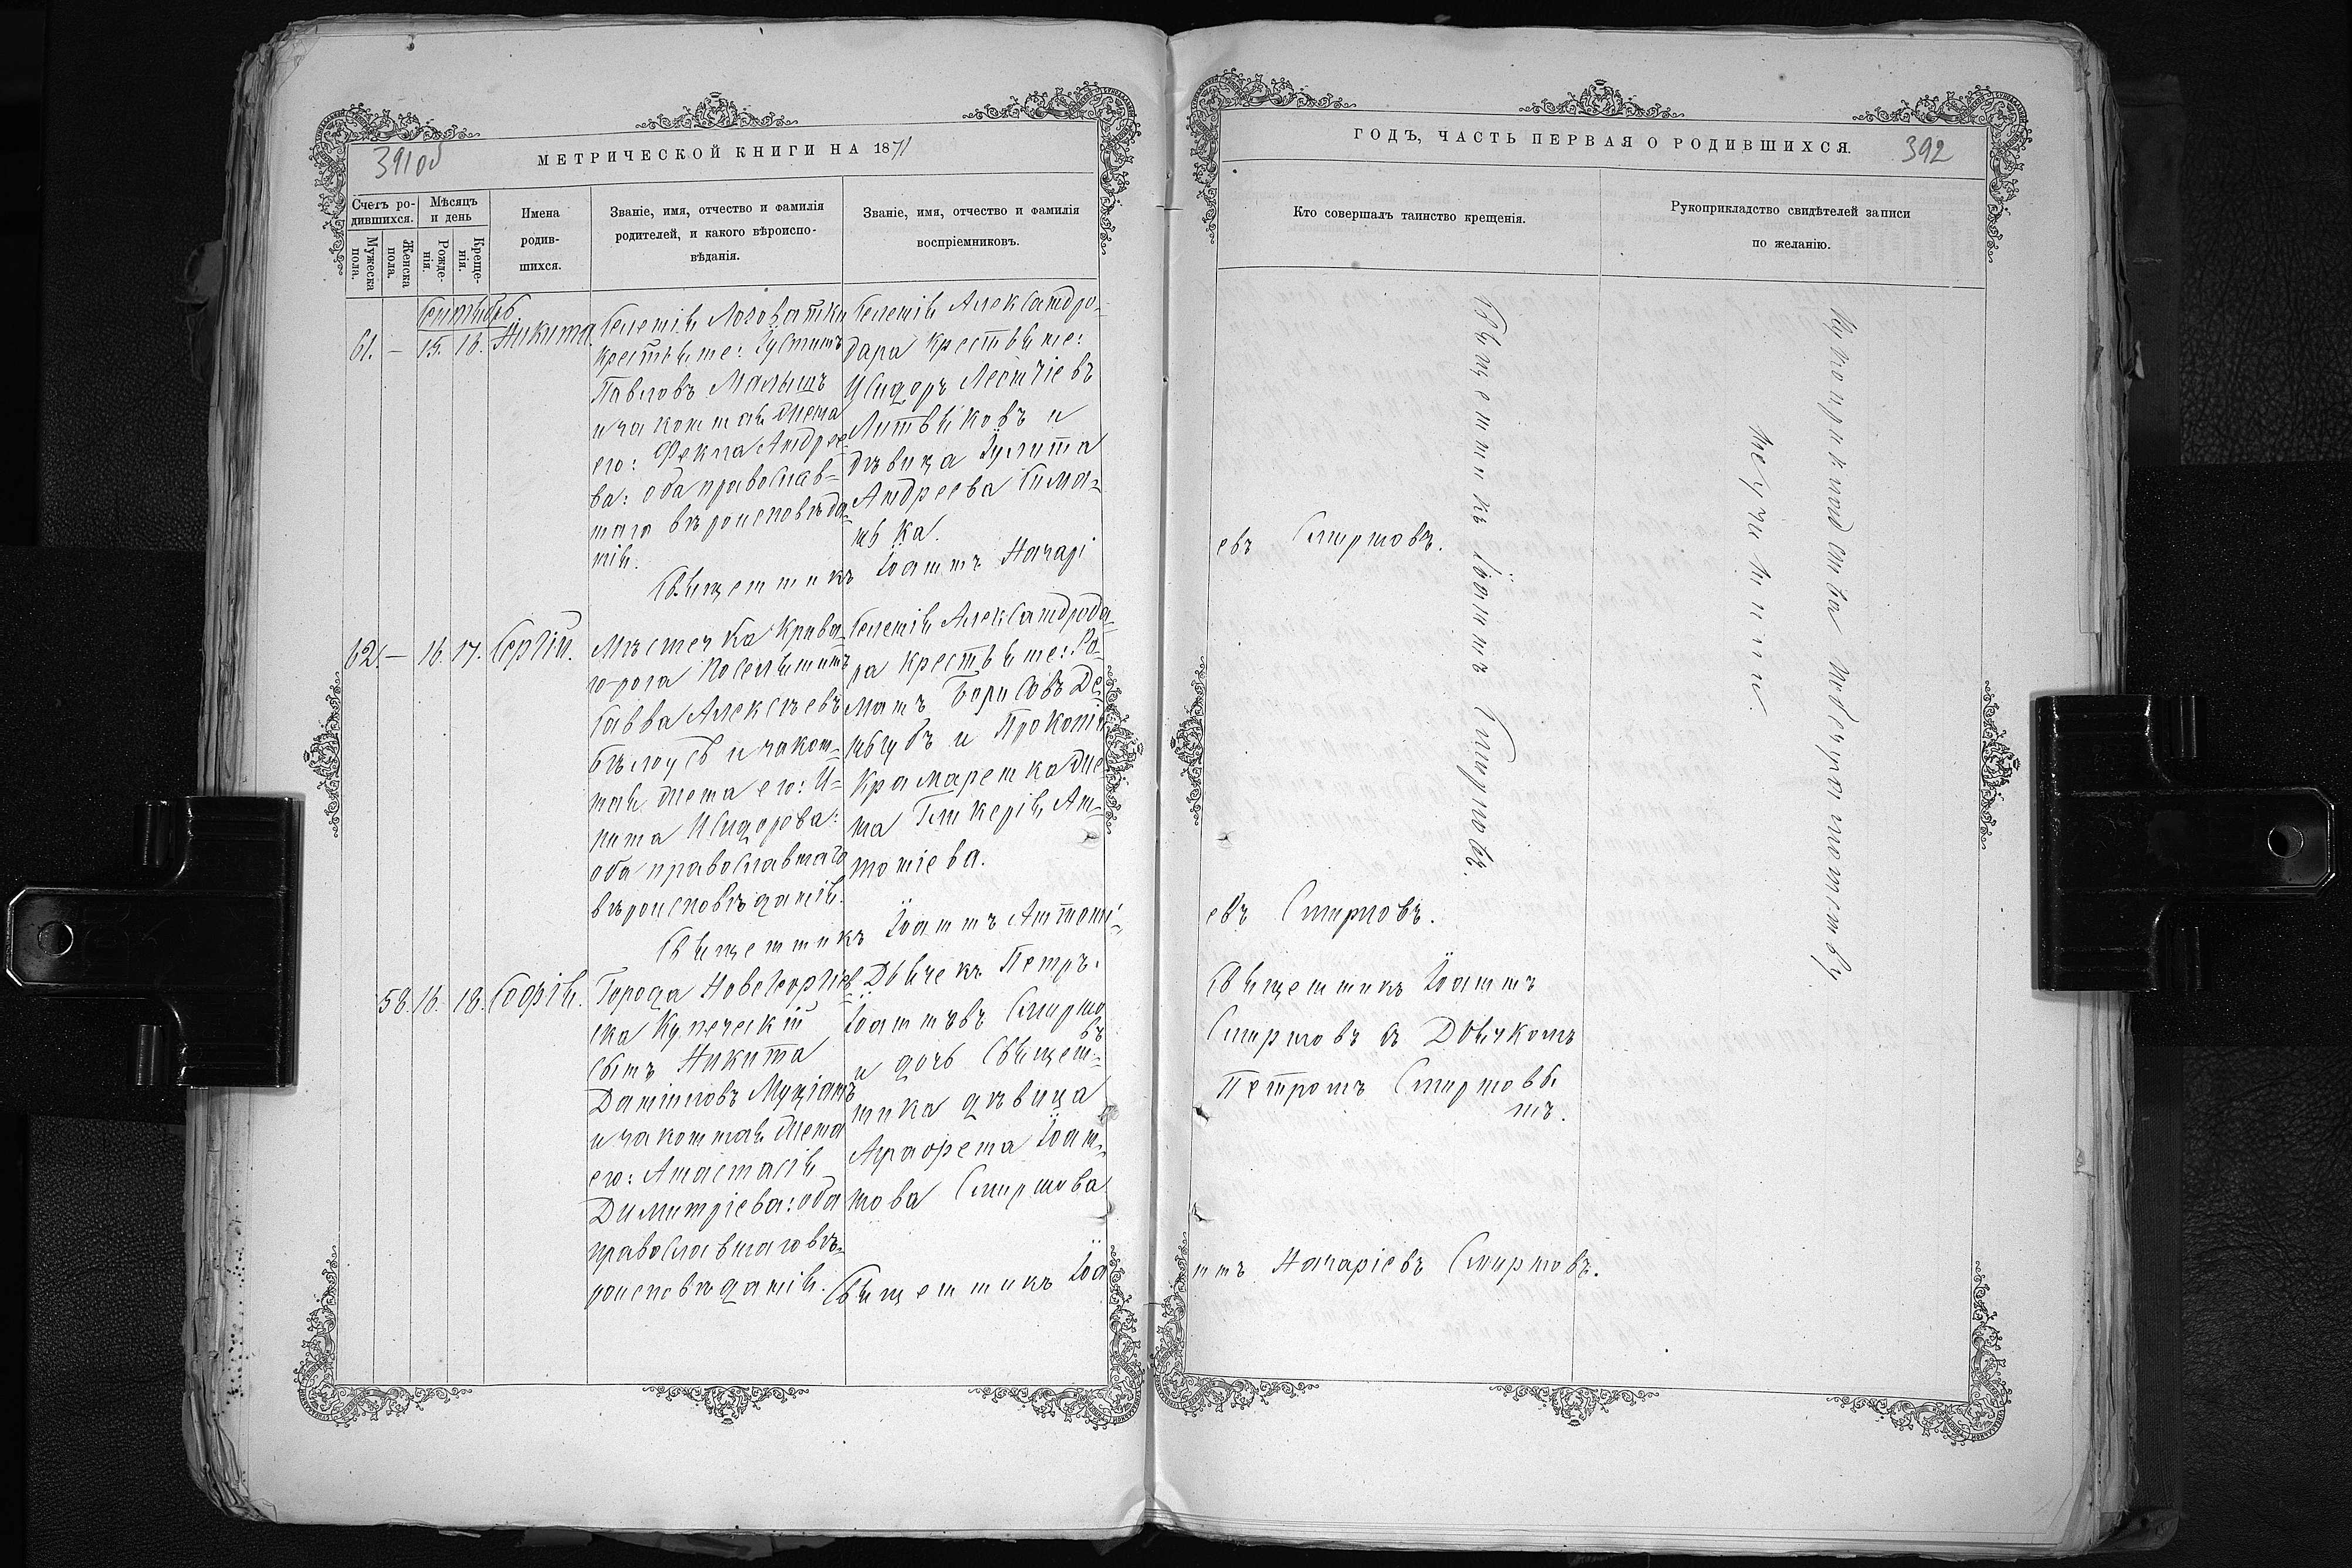 391об
МЕТРИЧЕСКОЙ КНИГИ НА 1871
Счетъ ро-
дившихся.
Мужеска пола.
Женска пола.
Мѣсяцъ
и день
Рожде-
нія.
Креще-
нія.
Имена
родив-
шихся.
Званіе, имя, отчество и фамилія
родителей, и какого вѣроиспо-
вѣданія.
Званіе, имя, отчество и фамилія
воспріемниковъ.
Сентябрь.
61. — 15. 16. Никита.
Селенія Лозоватки
крестьяне: Іустинъ
Павловъ Малышъ
и законная жена
его: Фекла Андрее-
ва: оба православ-
наго вѣроисповѣда-
нія.
Селенія Александро-
дара крестьяне:
Исидоръ Леонтіевъ
Литвяковъ и
дѣвица Іулита
Андреева Сима-
нька.
Священникъ Іоаннъ Назарі
62. — 16. 17. Сергій.
Мѣстечка Криво-
го-рога поселянинъ
Савва Алексѣевъ
Бѣлоусъ и закон-
ная жена его: И-
лита Исидорова:
оба православнаго
вѣроисповѣданія.
Селенія Александрода-
ра крестьяне: Ро-
манъ Борисовъ Де-
ньгубъ и Прокопія
Крамаренка же-
на Гликерія Ан-
тоніева.
Священникъ Іоаннъ Антоні-
58. 16. 18. Софія.
Города Новогеоргіев-
ска Купеческій
сынъ Никита
Даниловъ Музіанъ
и законная жена
его: Анастасія
Димитріева: оба
православнаго вѣ-
роисповѣданія.
Дьячекъ Петръ
Іоанновъ Смирно
въ
и дочь Священ-
ника дѣвица
Аграфена Іоан-
нова Смирнова
Священникъ Іоа
ГОДЪ, ЧАСТЬ ПЕРВАЯ О РОДИВШИХСЯ.
392
Кто совершалъ таинство крещенія.
Рукоприкладство свидѣтелей записи
по желанію.
Священникъ Іоаннъ Смирновъ.
Рукоприкладства небыло по неже
неучи
евъ Смирновъ.
евъ Смирновъ.
Священникъ Іоаннъ
Смирновъ съ Дьячкомъ
Петромъ Смирновы
мъ.
ннъ Назаріевъ Смирновъ.